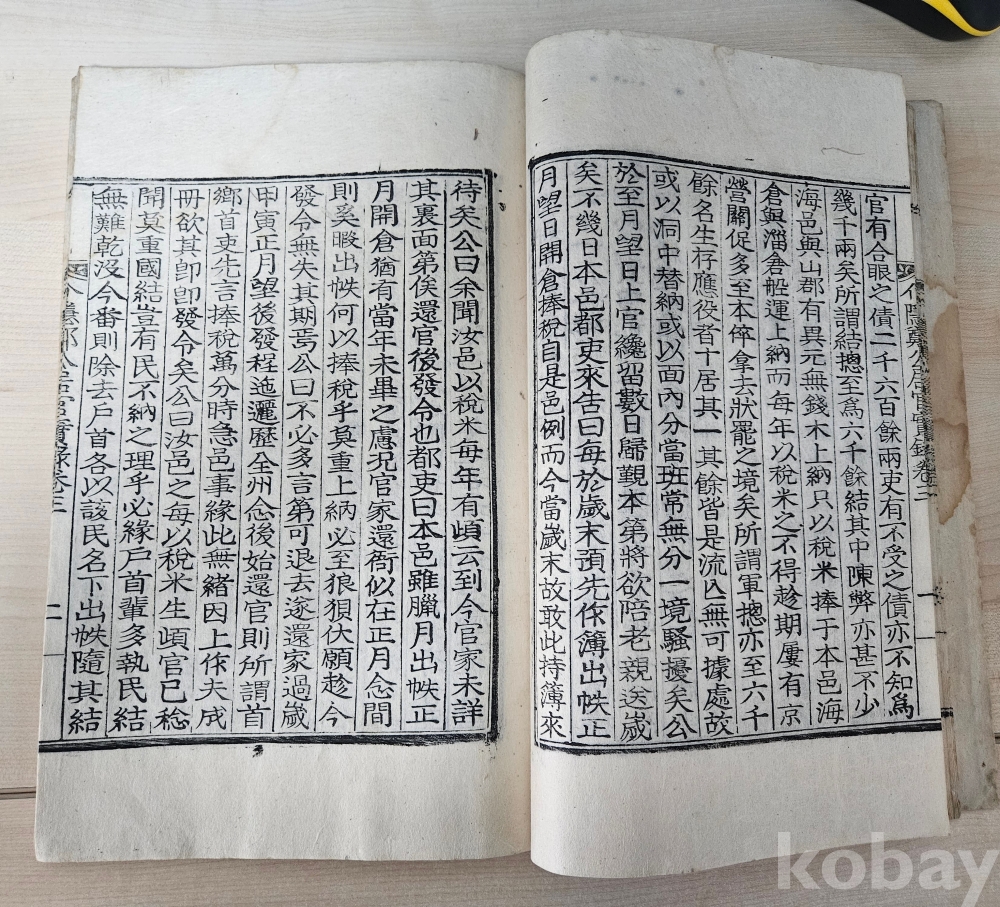 官有合眼之債二千六百餘兩吏有不受之債亦不知爲
幾千兩矣所謂結摠至爲六千餘結其中陳弊亦甚不少
海邑與山郡有異元無錢木上納只以稅米捧于本邑海
倉與淄倉船運上納而每年以稅米之不得趁期屢有京
營關促多至本倅拿去狀罷之境矣所謂軍摠亦至六千
餘名生存應役者十居其一其餘皆是流亡無可據處故
或以洞中替納或以面內分當班常無分一境騷擾矣公
於至月望日上官纔留數日歸覲本第將欲陪老親送歲
矣不幾日本邑都吏來告曰每於歲末預先作簿出帙正
月望日開倉捧稅自是邑例而今當歲末故敢此持簿來
待矣公曰余聞汝邑以稅米每年有頉云到今官家未詳
其裏面第俟還官後發令也都吏曰本邑雖臘月出帙正
月開倉猶有當年未畢之慮况官家還衙似在正月念間
則奚暇出帙何以捧稅乎莫重上納必至狼狽伏願趁今
發令無失其期焉公曰不必多言第可退去遂還家過歲
甲寅正月望後發程迤邐歷全州念後始還官則所謂首
鄉首吏先言捧稅萬分時急邑事緣此無緒因上作夫成
冊欲其卽卽發令矣公曰汝邑之每以稅米生頉官已稔
聞莫重國結豈有民不納之理乎必緣戶首輩多執民結
無難乾沒今番則除去戶首各以該民名下出帙隨其結
公居官實錄卷之二
一
二
kobay